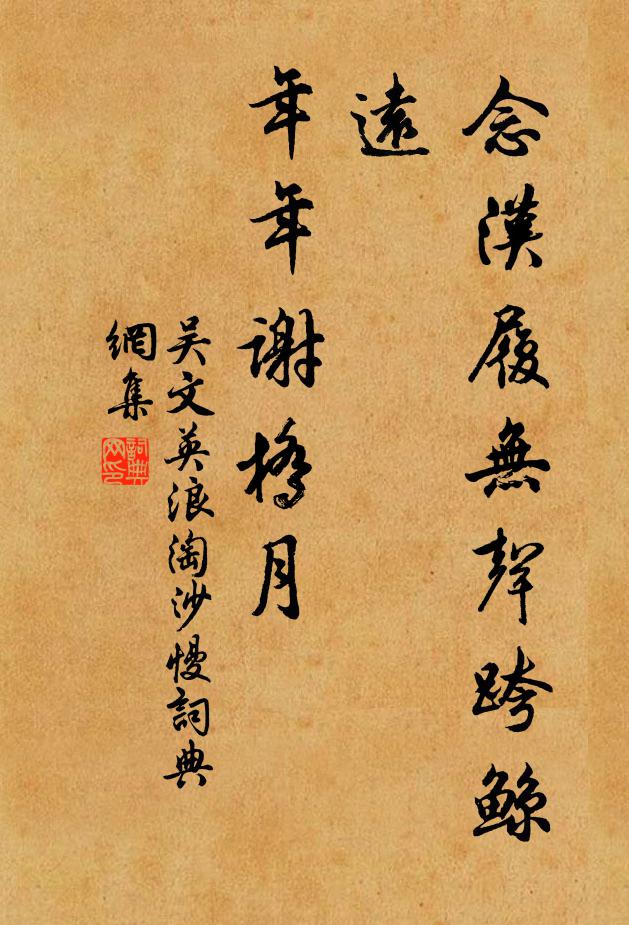 念漢履無聲跨鲸
遠
年年謝橋月
吴文英浪淘沙慢詞典
網集
詞典
网印